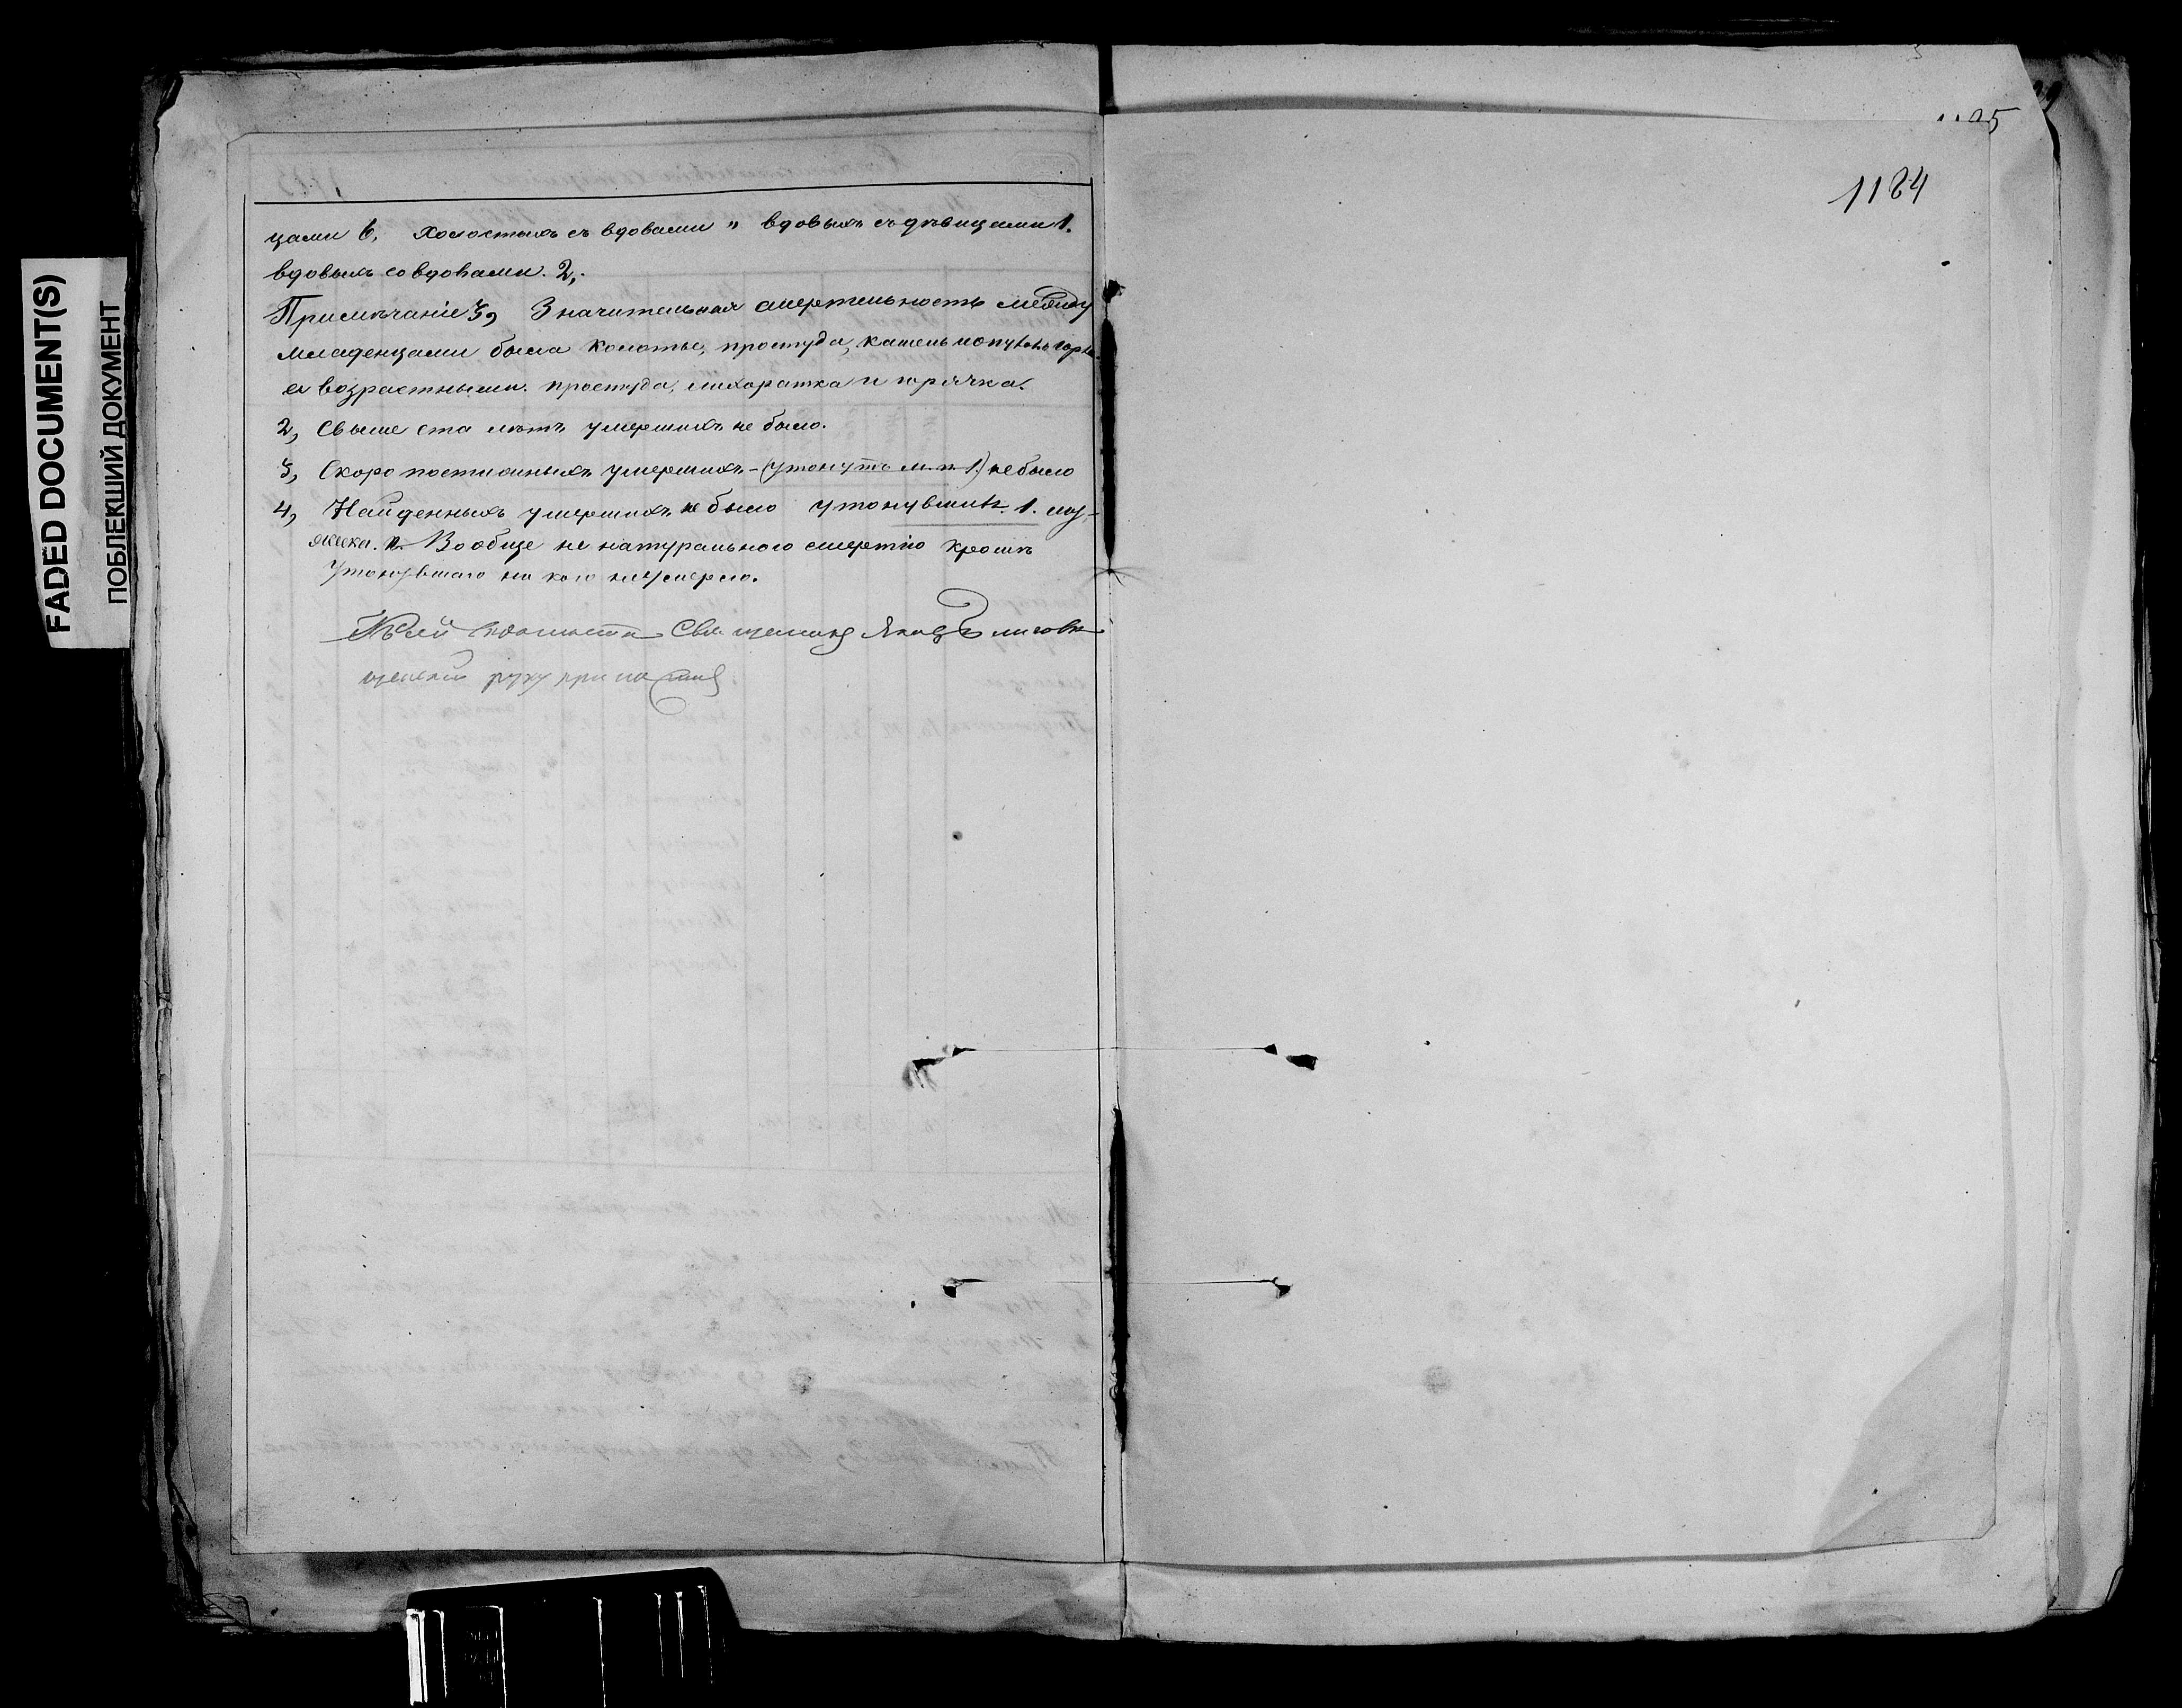 FADED DOCUMENT(S)
ПОБЛЕКШИЙ ДОКУМЕНТ
1184
цами 6, холостыхъ съ вдовами " вдовыхъ съ дѣвицами 1.
вдовыхъ со вдовами. 2,
Примѣчаніе 3, Значительная смертельность между
младенцами была колотье, простуда, кашель
возрастными. простуда, лихоратка и горячка.
2, Свыше ста лѣтъ умершихъ не было.
3, Скоропостижныхъ умершихъ - (утонутъ м. п 1.) не было
4, Найденныхъ умершихъ не было утонувшихъ. 1. му-
жеска. п. Вообще не натурального смертію кромѣ
утонувшаго ни кого не умерло.
Священникъ Яковъ
руку приложилъ